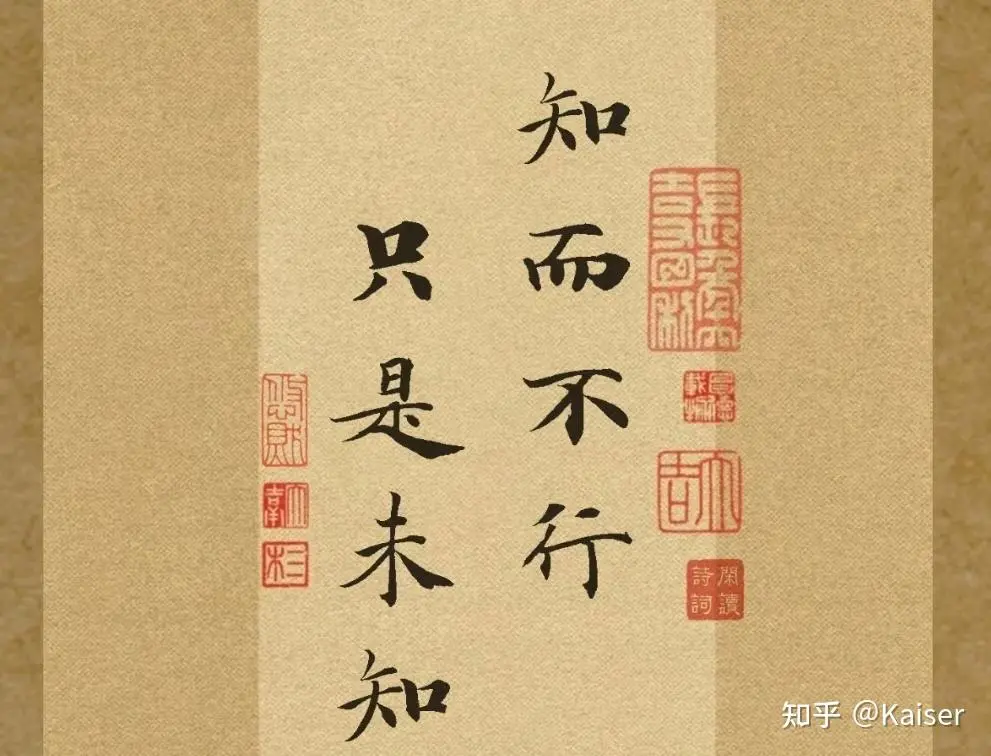 知而不行
只是未知
大吉
閑讀詩詞
知乎 @Kaiser